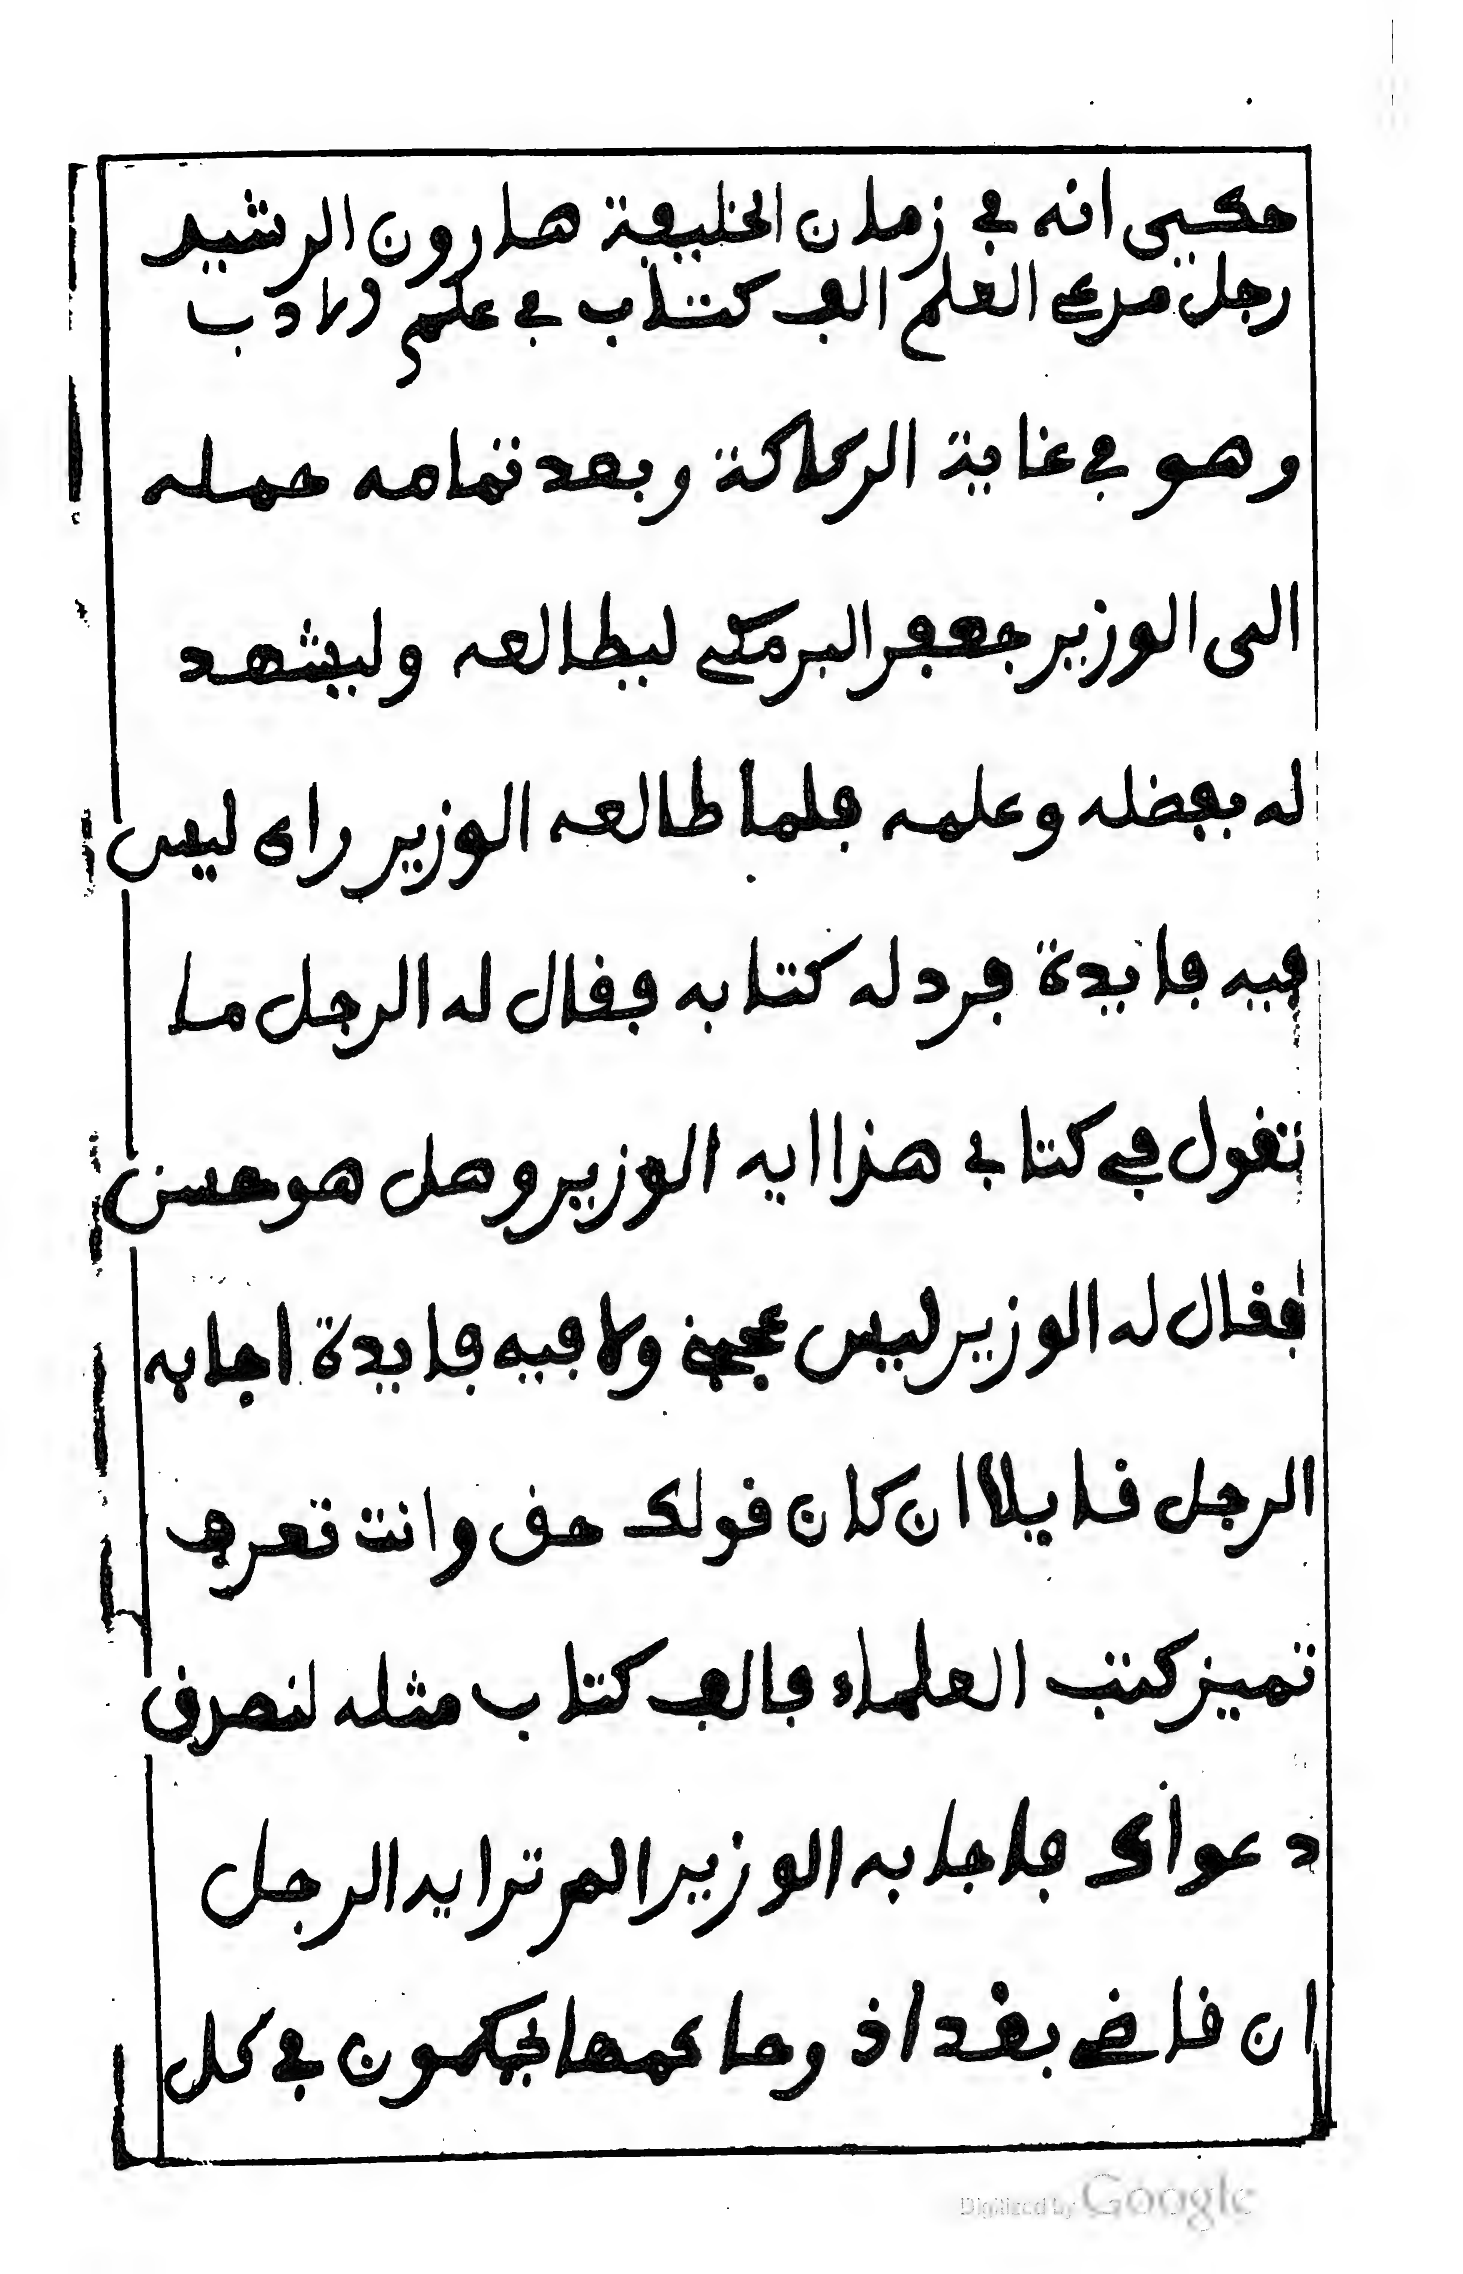 حكيى انه في زمان الخليفة هارون الرشيد
رجل مدعى العلم الف كتاب في علم ولادب
وهو في غاية الركاكة وبعد تمامه حمله
الى الوزير جعفر البرمكي ليطالعه وليشهد
له بفضله وعلمه فلما طالعه الوزير راى ليس
فيه فايدة فرد له كتابه فقال له الرجل ما
تقول في كتابي هذا ايه الوزير وهل هو حسن
فقال له الوزير ليس عجبني ولا فيه فايدة اجابه
الرجل قايلا ان كان قولك حق وانت تعرف
تميز كتب العلماء فالف كتاب مثله لنصرف
دعواك فاجابه الوزير الم تر ايد الرجل
ان قاضي بغداذ وحاكمها يحكمون في كل
Digitized by Google